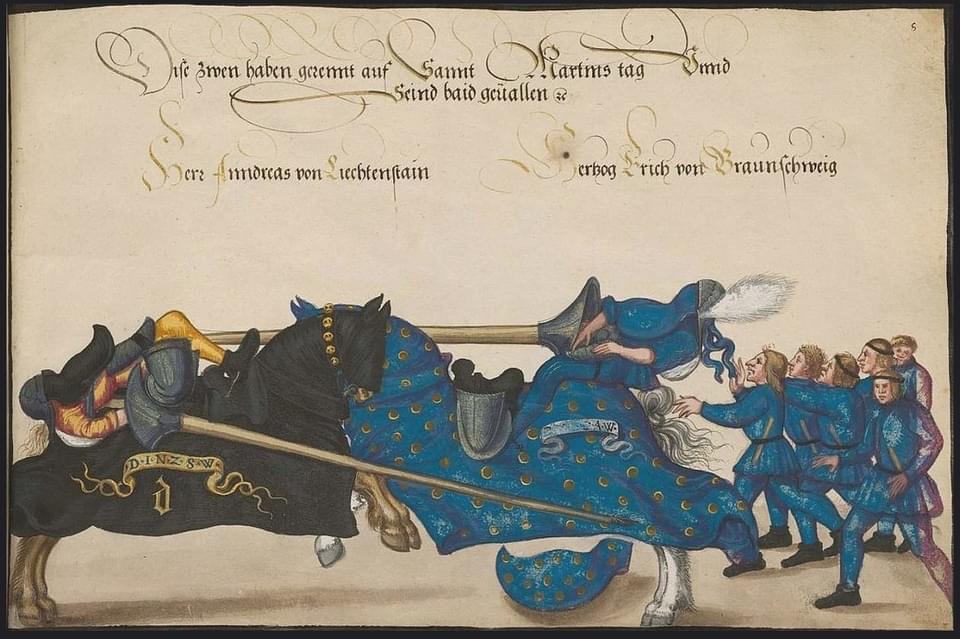 Dise zwen haben gerennt auf Sannt Martins tag Vnnd
Seind baid geüallen
Herr Anndreas von Liechtenstain
Hertzog Erich von Braunschweig
D·I·N·Z·S·W
d
A·W·